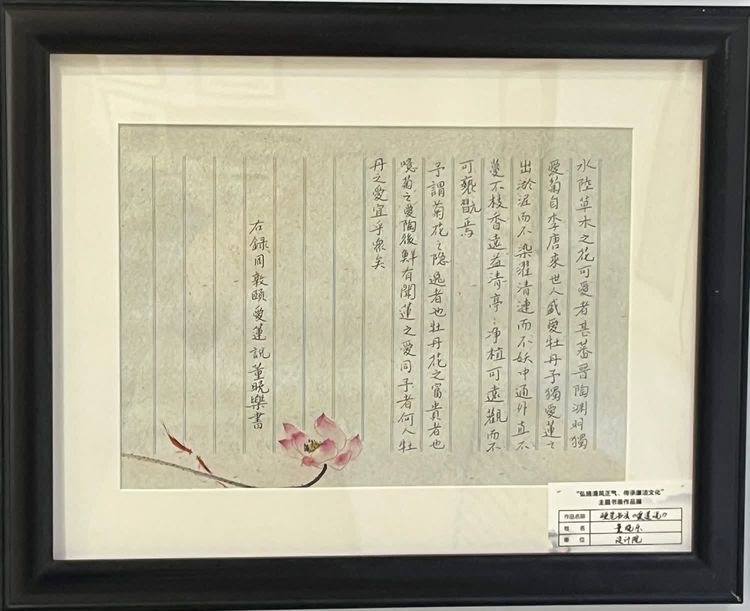 水陸草木之花可愛者甚蕃晉陶淵明獨
愛菊自李唐來世人盛愛牡丹予獨愛蓮之
出淤泥而不染濯清漣而不妖中通外直不
蔓不枝香遠益清亭〻淨植可遠觀而不
可褻翫焉
予謂菊花之隱逸者也牡丹花之富貴者也
噫菊之愛陶後鮮有聞蓮之愛同予者何人牡
丹之愛宜乎衆矣
右録周敦頤愛蓮説董曉樂書
“弘扬清风正气、传承廉洁文化”
主题书画作品展
作品名称 硬笔书法《爱莲说》
姓名 董晓乐
单位 设计院